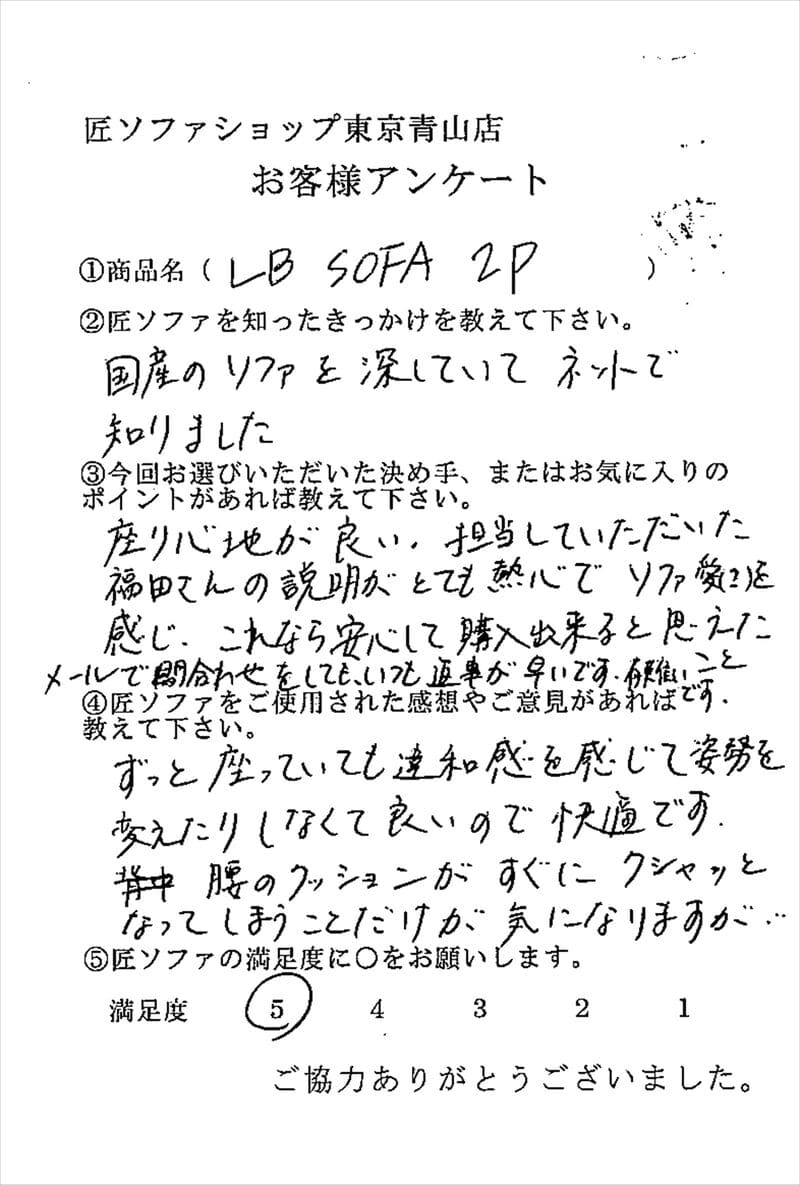 匠ソファショップ東京青山店
お客様アンケート
①商品名（ LB SOFA 2P ）
②匠ソファを知ったきっかけを教えて下さい。
国産のソファを深していて ネットで
知りました
③今回お選びいただいた決め手、またはお気に入りの
ポイントがあれば教えて下さい。
座り心地が良い、担当していただいた
福田さんの説明がとても熱心で ソファ愛(?)を
感じ、これなら安心して購入出来ると思えた
メールで問合わせをしても、いつも返事が早いです。有難いこと
です。
④匠ソファをご使用された感想やご意見があれば
教えて下さい。
ずっと座っていても違和感を感じて姿勢を
変えたりしなくて良いので快適です。
背中 腰のクッションがすぐにクシャッと
なってしまうことだけが気になりますが…
⑤匠ソファの満足度に○をお願いします。
満足度 5 4 3 2 1
ご協力ありがとうございました。